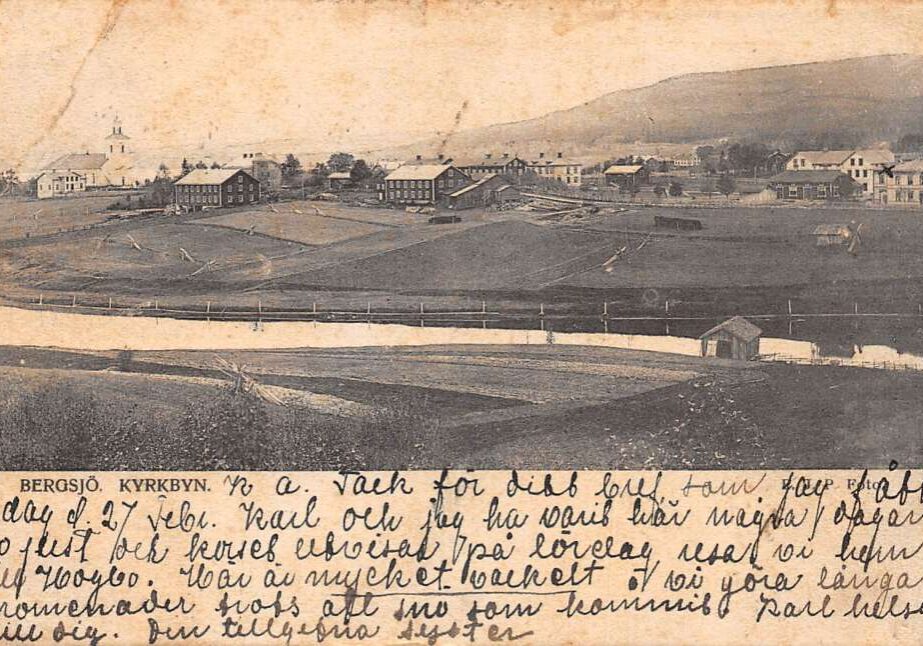 BERGSJÖ. KYRKBYN. K a. Tack för ditt bref, som jag
dag d. 27 Febr. Karl och jag ha varit här några dagar
just det kortet utvisar, på lördag resa vi hem
Högbo. Här är mycket vackert o vi göra långa
promenader trots allt snö som kommit. Karl hels
till dig. Din tillgifna syster